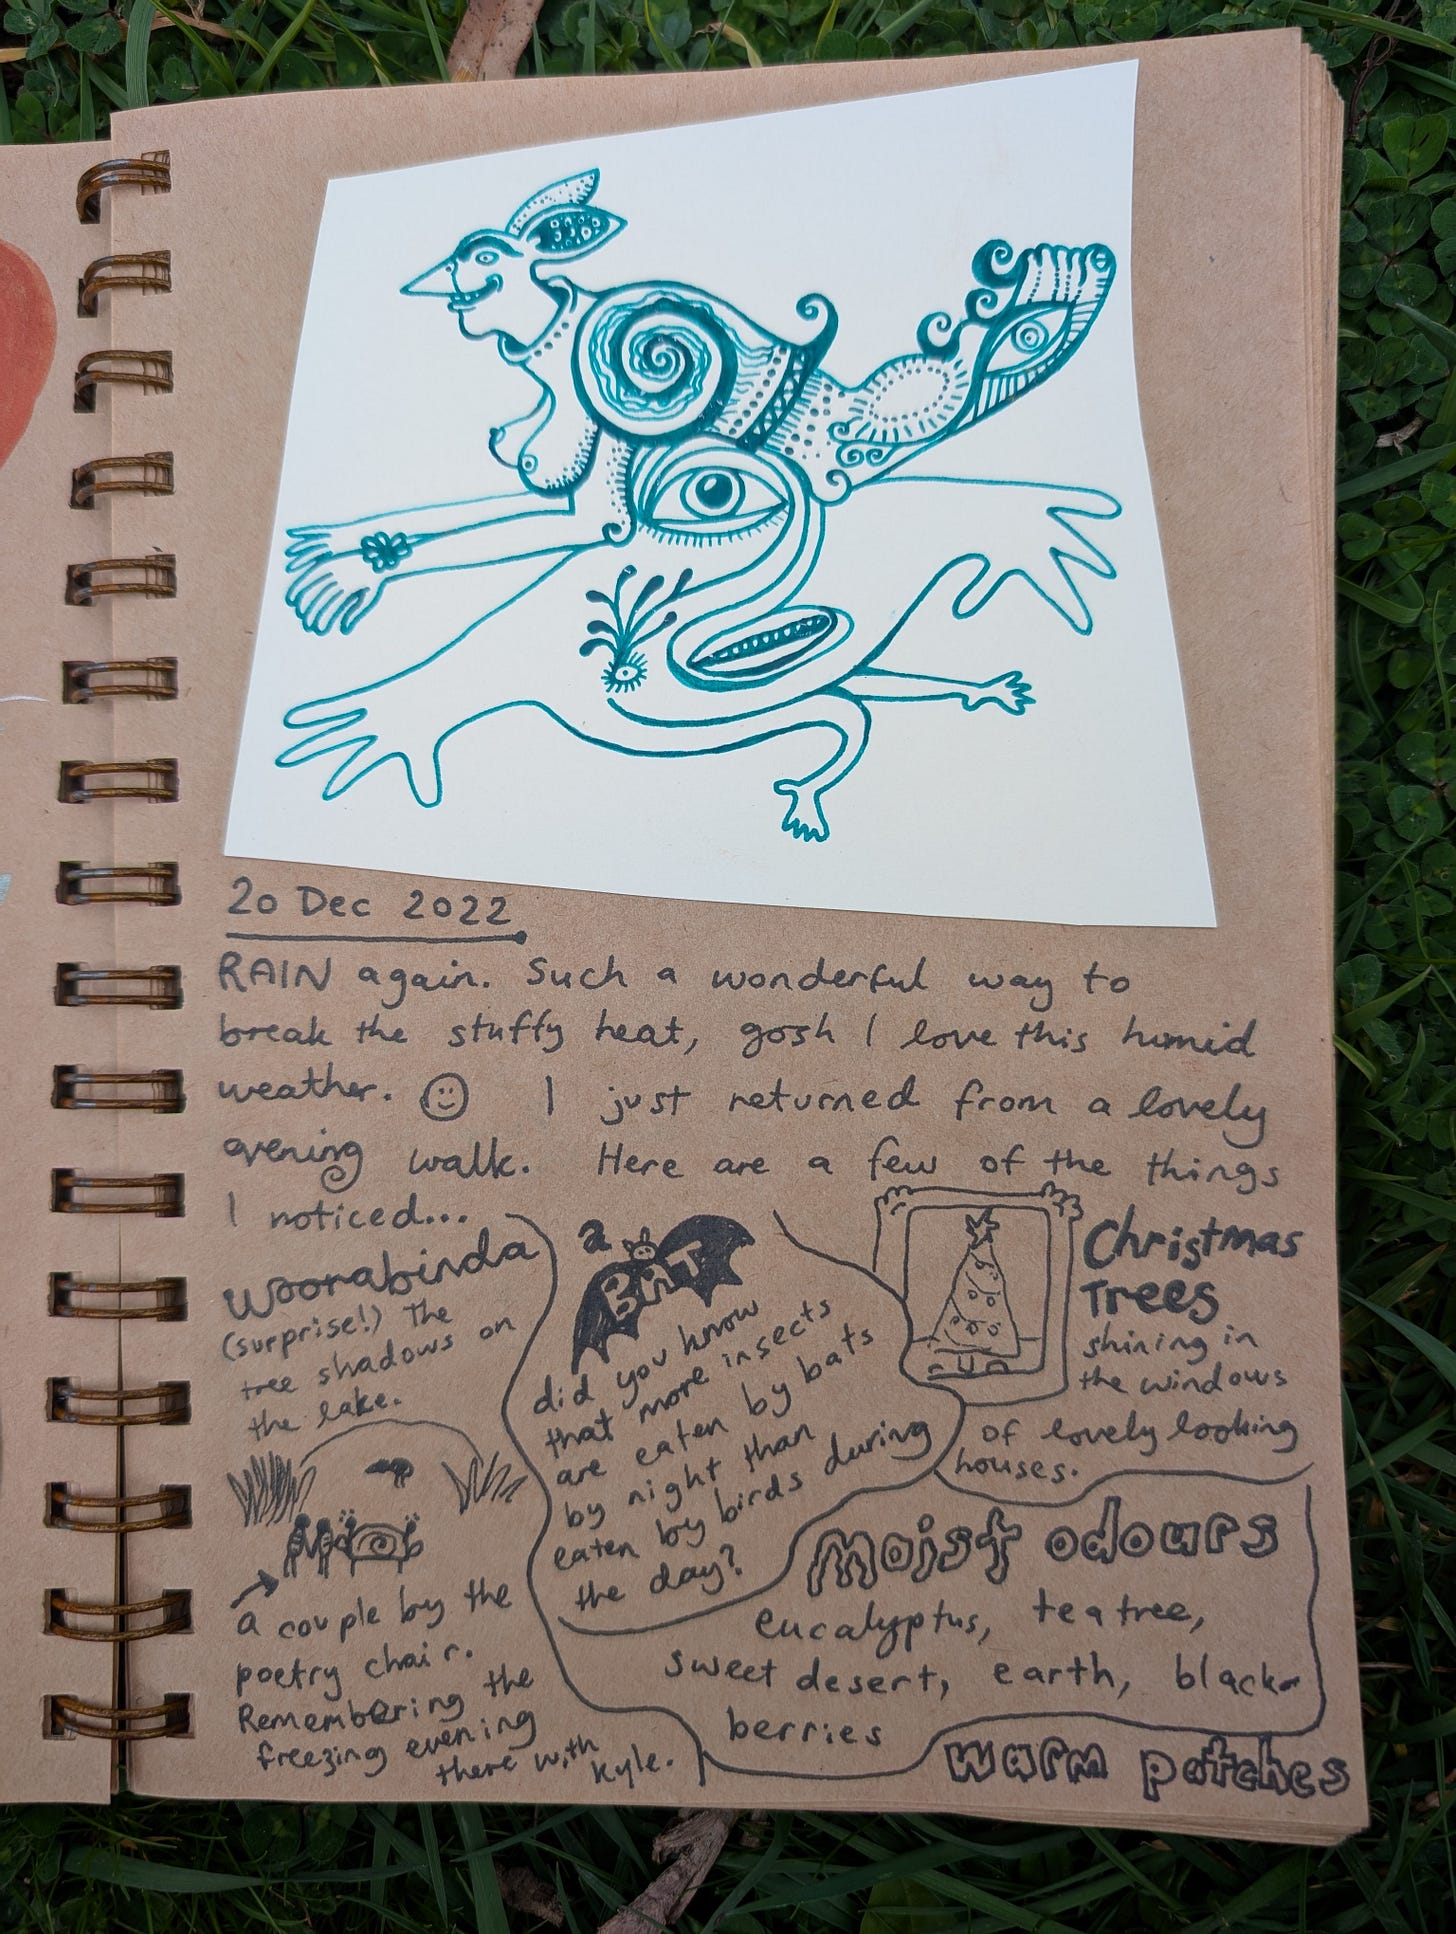 20 Dec 2022
RAIN again. Such a wonderful way to
break the stuffy heat, gosh I love this humid
weather. I just returned from a lovely
evening walk. Here are a few of the things
I noticed...
Woorabinda
(surprise!) The
tree shadows on
the lake.
a couple by the
poetry chair.
Remembering the
freezing evening
there with
Kyle.
a
BAT
did you know
that more insects
are eaten by bats
by night than
eaten by birds during
the day?
Christmas
Trees
shining in
the windows
of lovely looking
houses.
Moist odours
eucalyptus, tea tree,
sweet desert, earth, black-
berries
warm patches